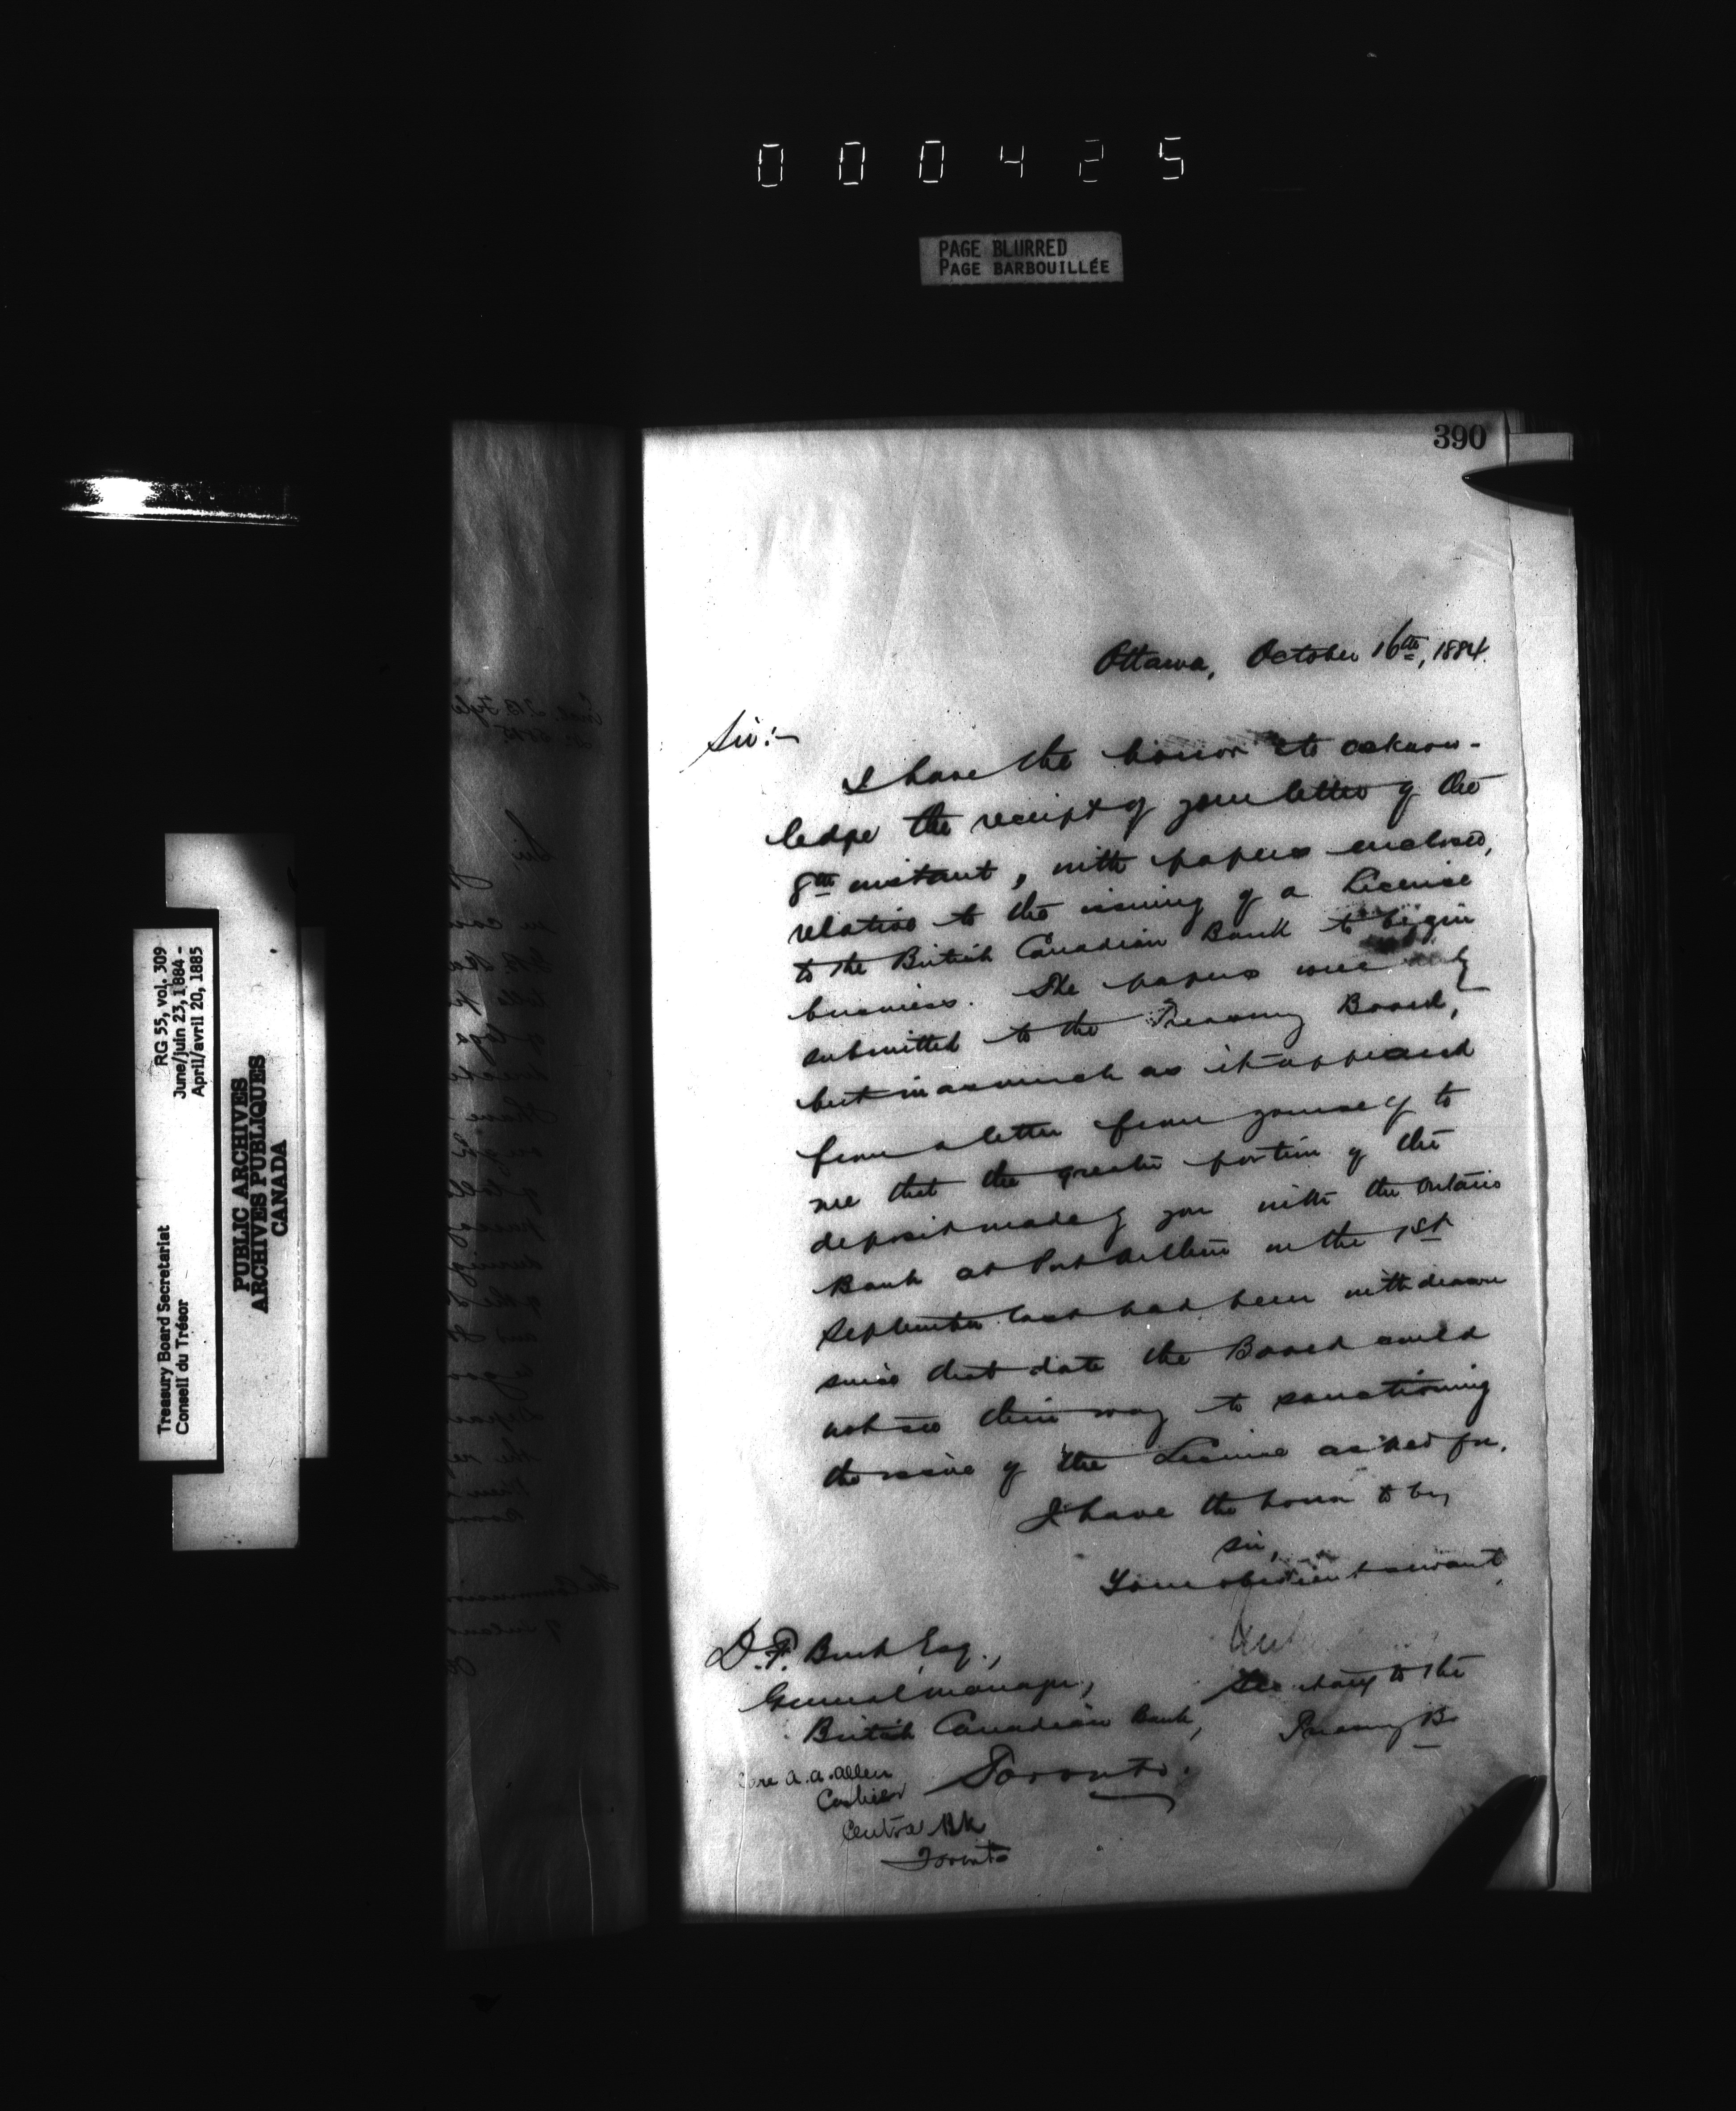 000425
PAGE BLURRED
PAGE BARBOUILLÉE
390
Ottawa, October 16th, 1884.
Sir:-
I have the honor to acknow-
ledge the receipt of your letter of the
8th instant, with papers enclosed,
relative to the issuing of a License
to the British Canadian Bank to begin
business. The papers were duly
submitted to the Treasury Board,
but inasmuch as it appeared
from a letter from yourself to
me that the greater portion of the
deposit made by you with the Ontario
Bank at Port Arthur on the 1st
September last had been withdrawn
since that date the Board could
not see their way to sanctioning
the issue of the License asked for.
I have the honor to be,
Sir,
Your obedient servant,
Secretary to the
Treasury B.
D. F. Burk Esq.,
General Manager,
British Canadian Bank,
Toronto.
Care A. A. Allen
Cashier
Central Bk
Toronto
RG 55, vol. 309
June/juin 23, 1884 -
April/avril 20, 1885
Treasury Board Secretariat
Conseil du Trésor
PUBLIC ARCHIVES
ARCHIVES PUBLIQUES
CANADA